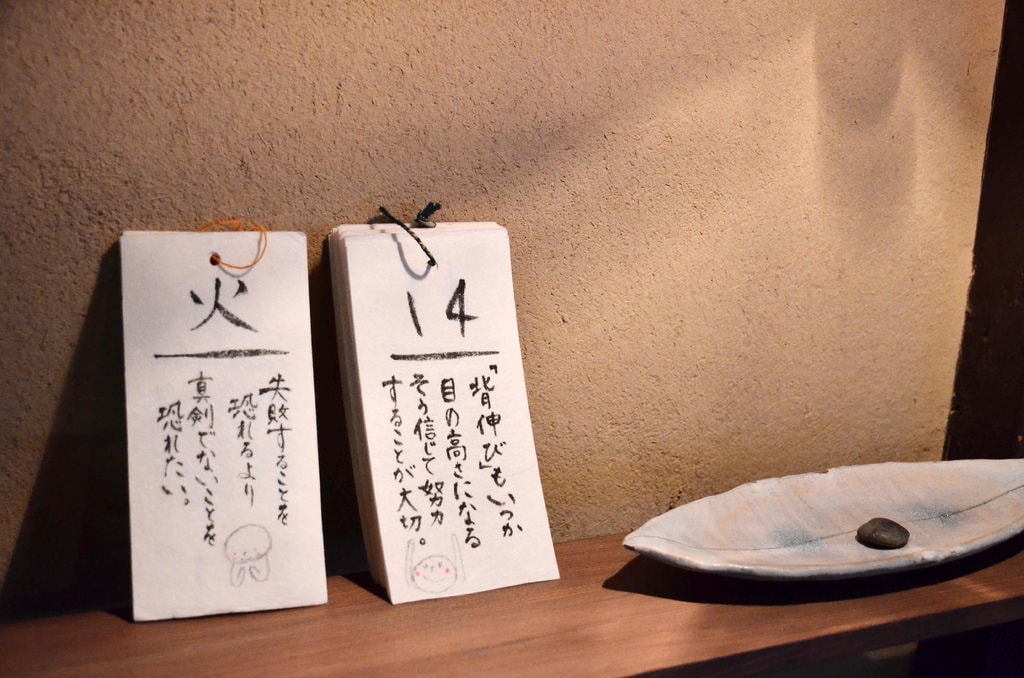 火
失敗することを
恐れるより
真剣でないことを
恐れたい。
14
「背伸び」もいつか
目の高さになる
そう信じて努力
することが大切。